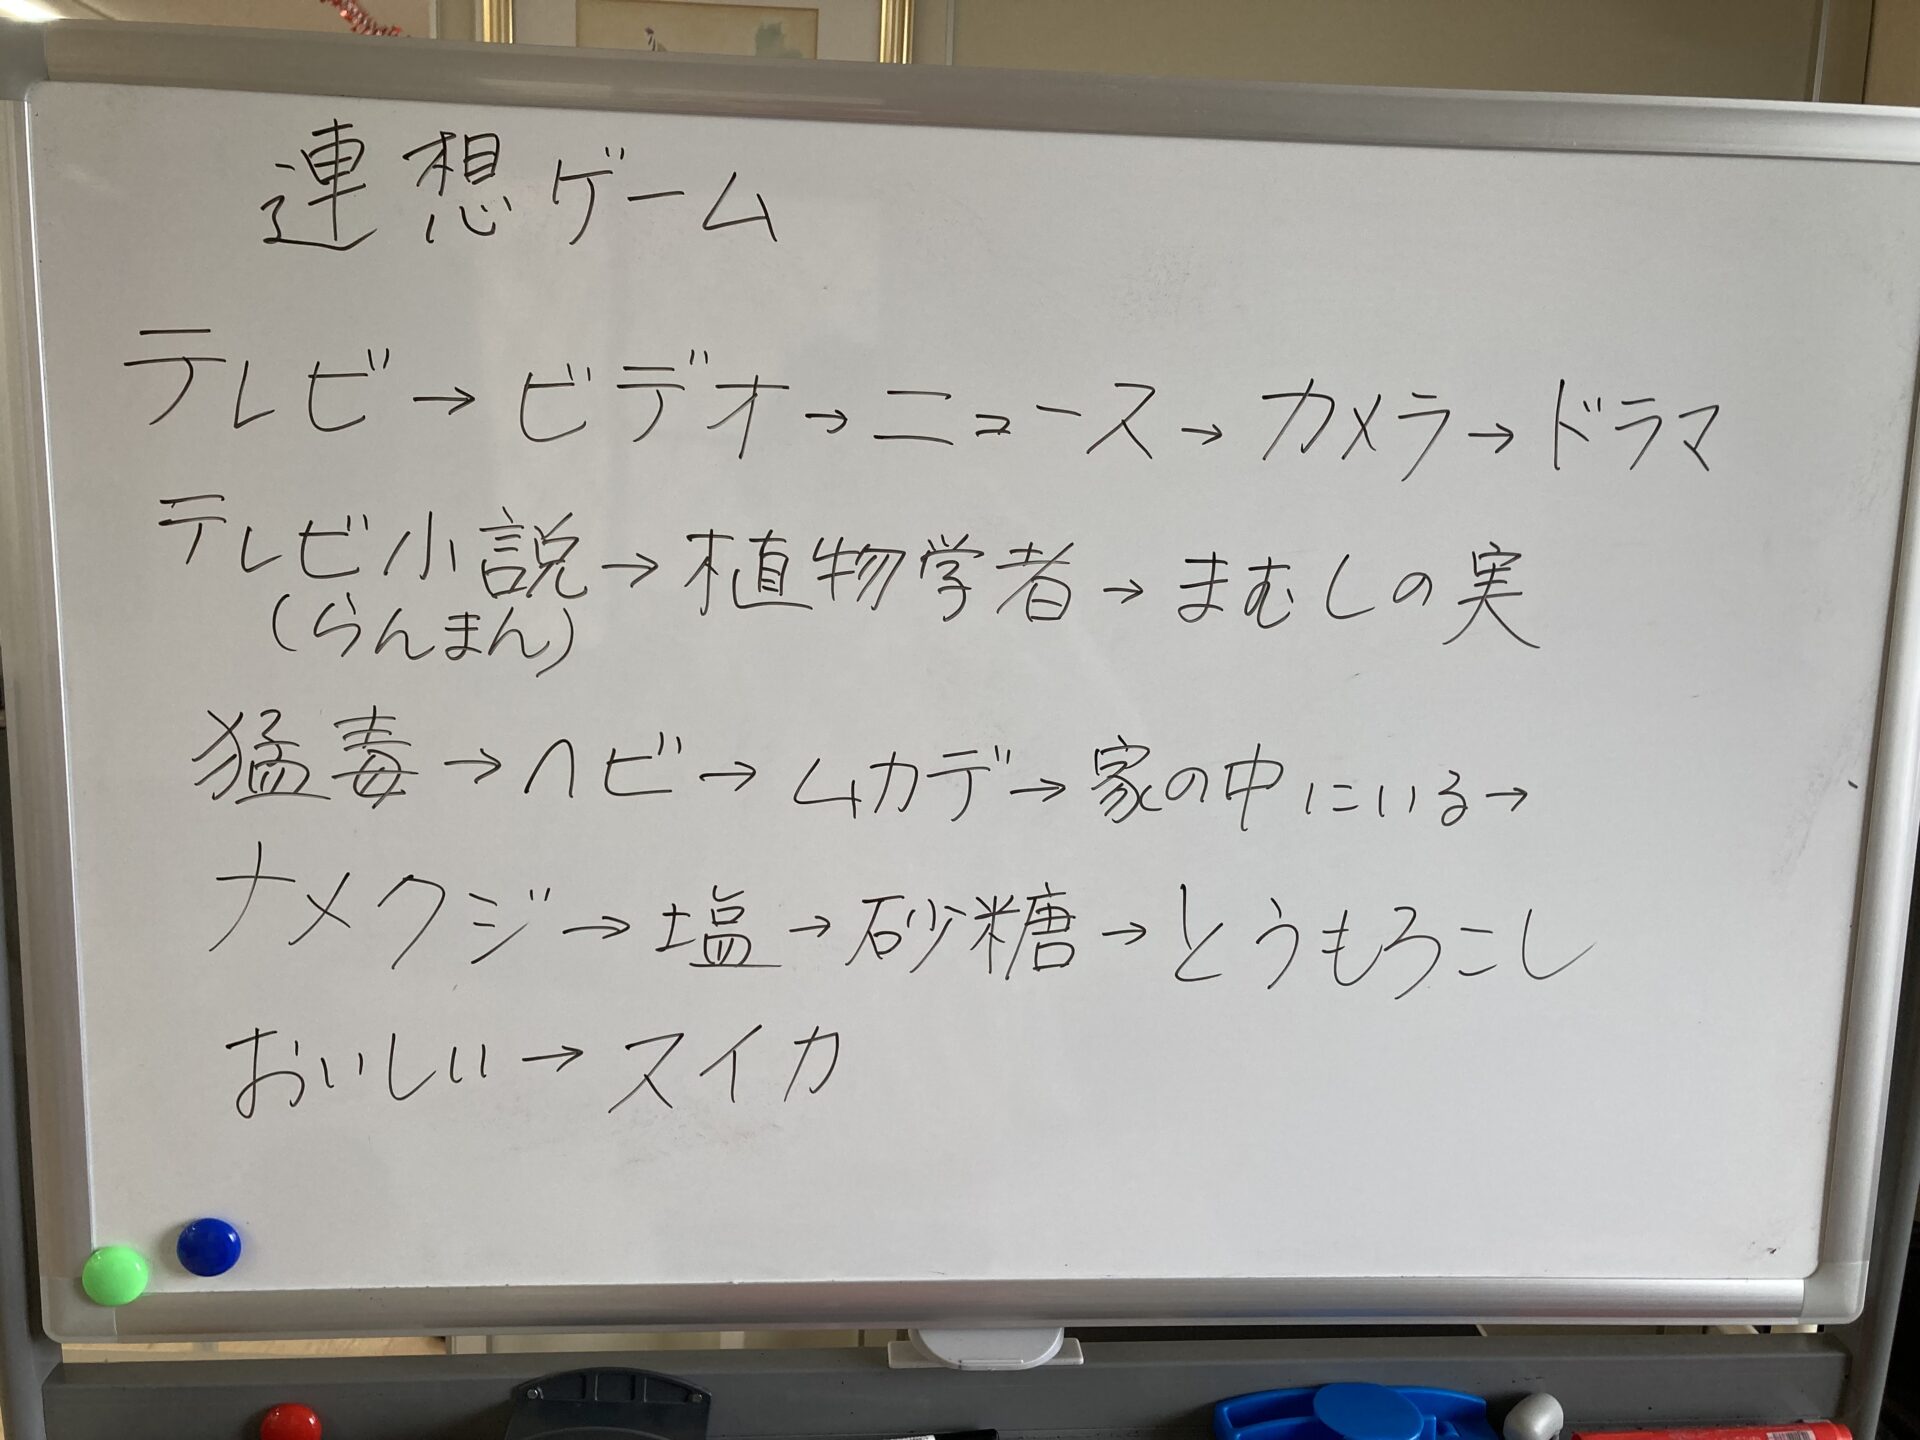 連想ゲーム
テレビ→ビデオ→ニュース→カメラ→ドラマ
テレビ小説→植物学者→まむしの実
(らんまん)
猛毒→ヘビ→ムカデ→家の中にいる→
ナメクジ→塩→砂糖→とうもろこし
おいしい→スイカ